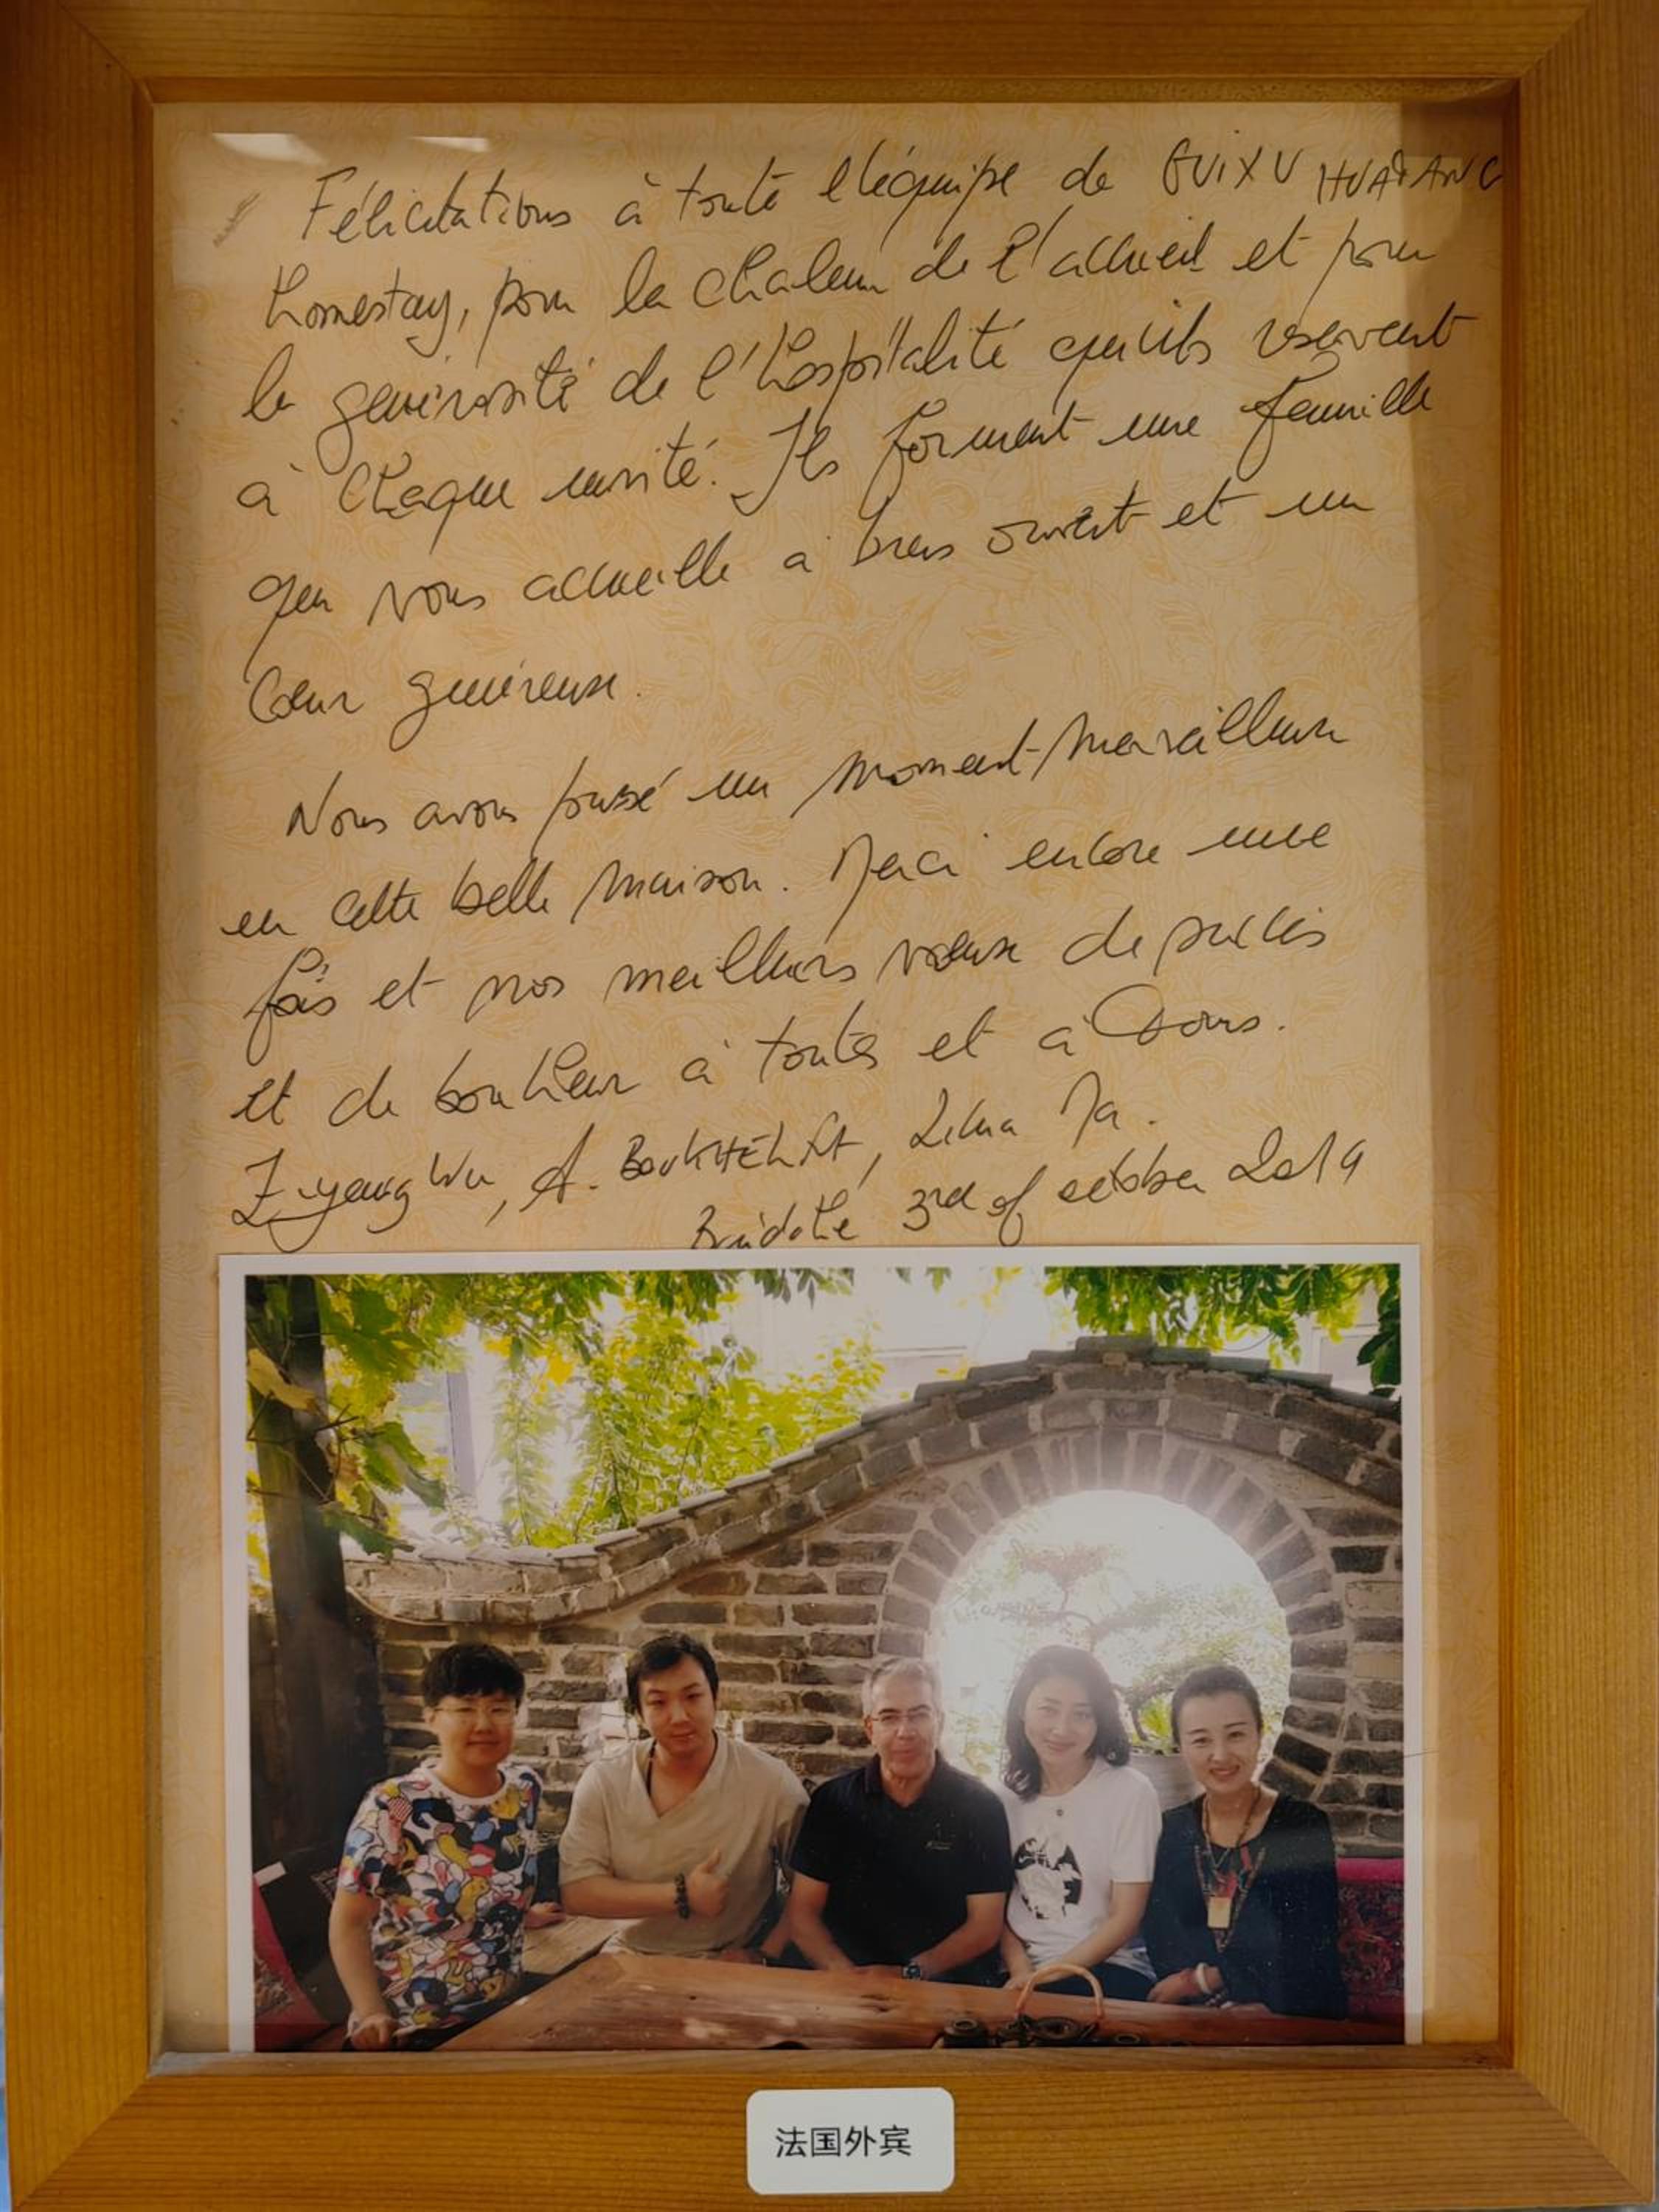 Félicitations à toute l'équipe de GUIXU
homestay, pour la chaleur de l'accueil et pour
la générosité de l'hospitalité qu'ils réservent
à chaque invité. Ils forment une famille
qui vous accueille à bras ouvert et un
cœur généreux.
Nous avons passé un moment merveilleux
en cette belle maison. Merci encore une
fois et nos meilleurs vœux de succès
et de bonheur à toutes et à tous.
Ziyang Wu, A. BOUKHELIFA, Lihua Ma.
3rd of october 2019
法国外宾